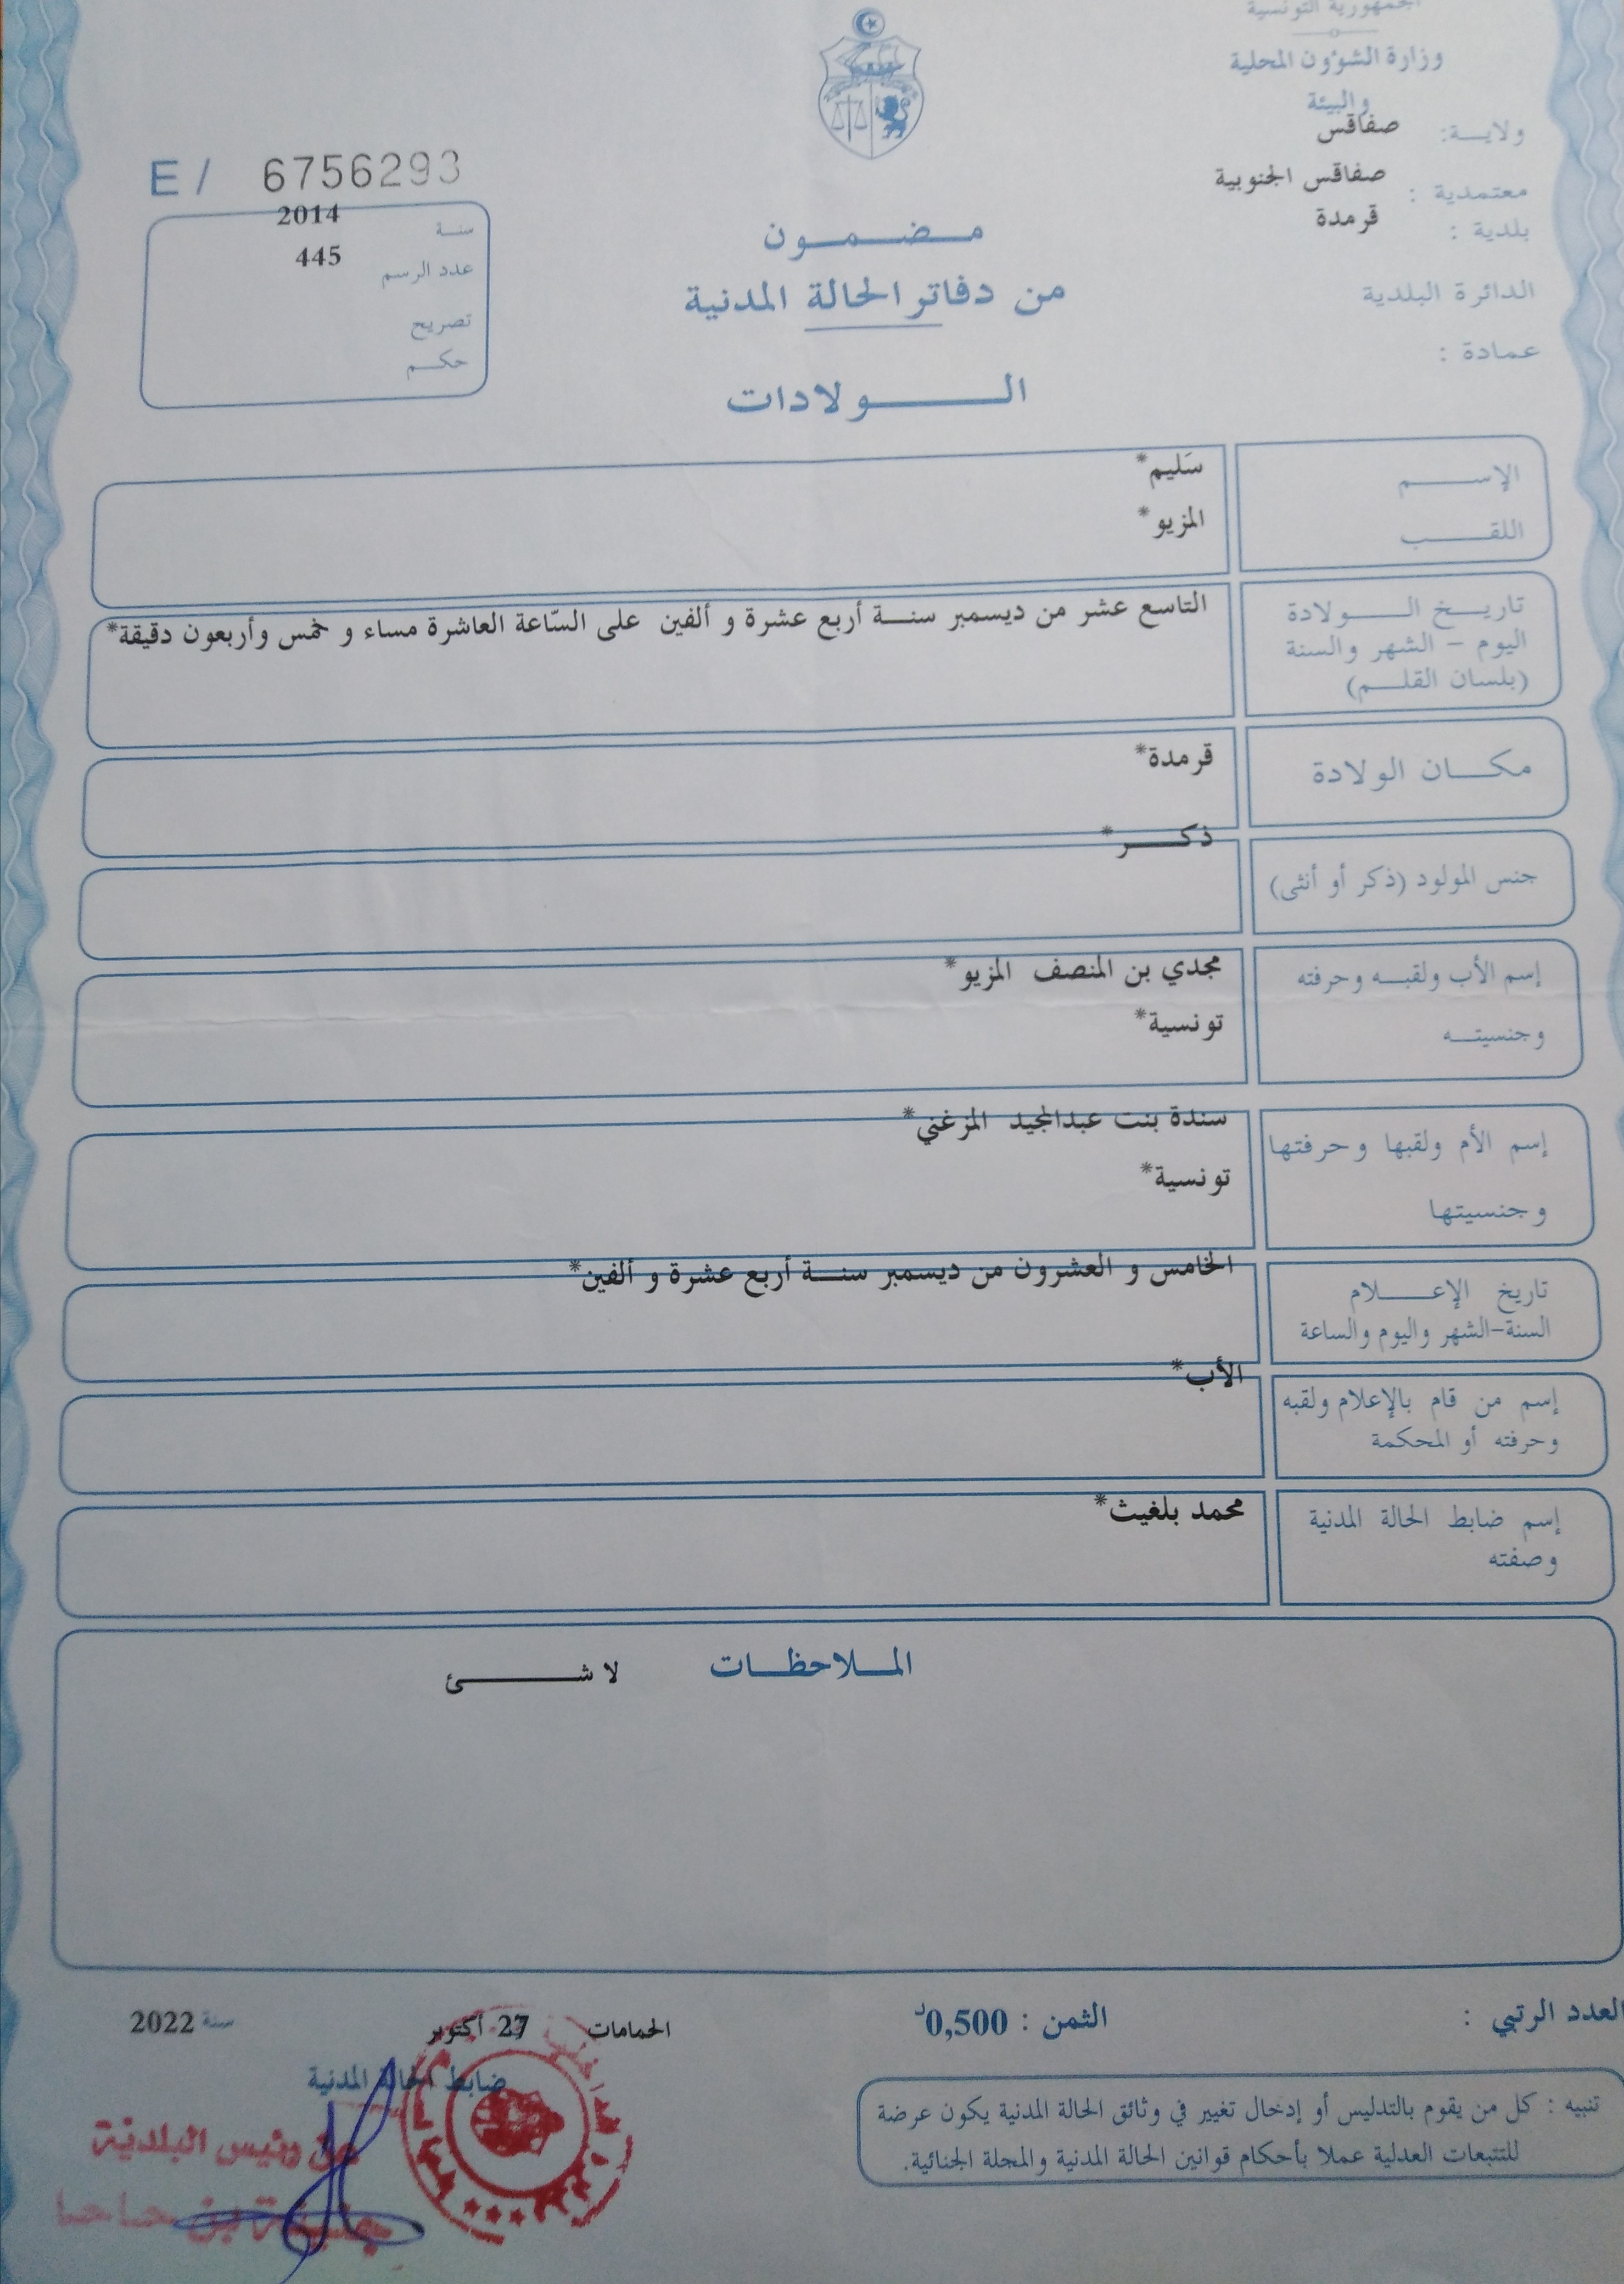 الجمهورية التونسية
وزارة الشؤون المحلية
والبيئة
ولايـة: صفاقس
معتمدية : صفاقس الجنوبية
بلدية : قرمدة
الدائرة البلدية
عمادة :
E / 6756293
سنـة 2014
عدد الرسم 445
تصريح
حكـم
مـضـمـون
من دفاتر الحالة المدنية
الـولادات
الإسـم سَليم*
اللقـب المزيو*
تاريـخ الـولادة التاسع عشر من ديسمبر سنـة أربع عشرة و ألفين على السّاعة العاشرة مساء و خمس وأربعون دقيقة*
اليوم - الشهر والسنة
(بلسان القلـم)
مكـان الولادة قرمدة*
جنس المولود (ذكر أو أنثى) ذكـر*
إسم الأب ولقبـه وحرفته مجدي بن المنصف المزيو*
وجنسيتـه تونسية*
إسم الأم ولقبها وحرفتها سندة بنت عبدالمجيد المزغني*
وجنسيتها تونسية*
تاريخ الإعـلام الخامس و العشرون من ديسمبر سنـة أربع عشرة و ألفين*
السنة-الشهر واليوم والساعة
إسم من قام بالإعلام ولقبه الأب*
وحرفته أو المحكمة
إسم ضابط الحالة المدنية محمد بلغيث*
وصفته
المـلاحظـات لا شـئ
العدد الرتبي :
الثمن : 0,500د
الحمامات 27 أكتوبر سنة 2022
ضابط الحالة المدنية
عن رئيس البلدية
تنبيه : كل من يقوم بالتدليس أو إدخال تغيير في وثائق الحالة المدنية يكون عرضة
للتتبعات العدلية عملا بأحكام قوانين الحالة المدنية والمجلة الجنائية.